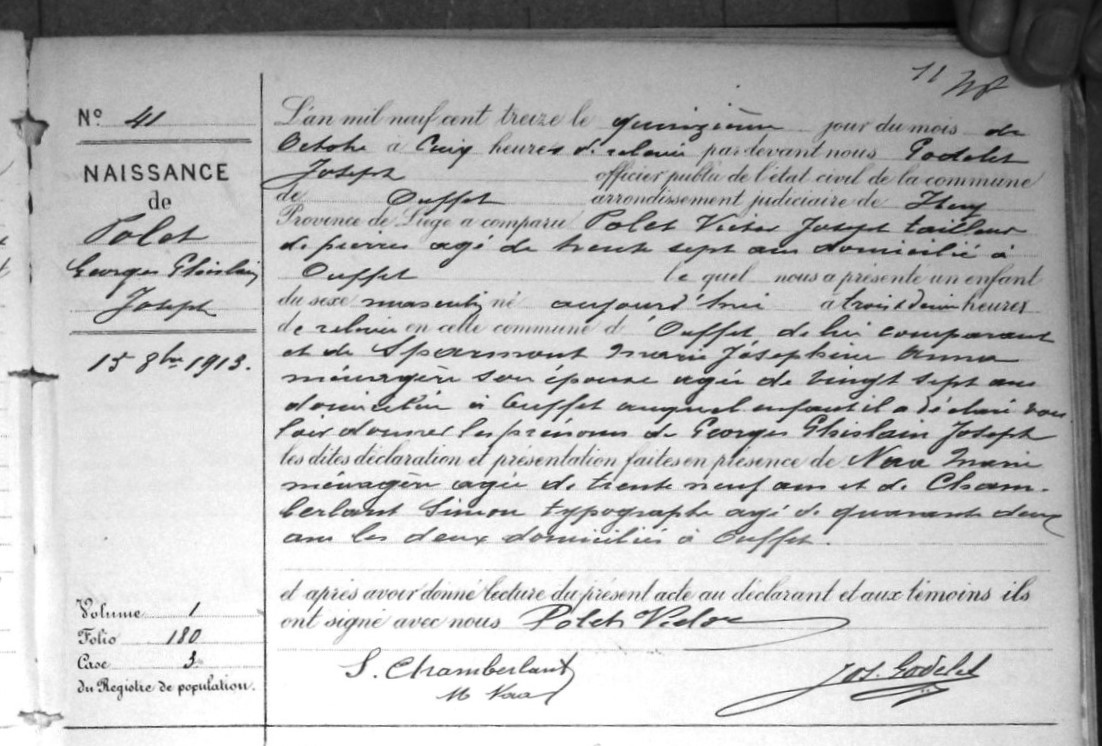 11
N° 41
NAISSANCE
de
Polet
Georges Ghislain
Joseph
15 8bre 1913.
L'an mil neuf cent treize le quinzième jour du mois de
Octobre à Cinq heures de relevée par devant nous Godelet
Joseph officier public de l'état civil de la commune
de Ouffet arrondissement judiciaire de Huy
Province de Liège a comparu Polet Victor Joseph tailleur
de pierres agé de trente sept ans domicilié à
Ouffet le quel nous a présenté un enfant
du sexe masculin né aujourd'hui à trois heures
de relevée en cette commune d'Ouffet de lui comparant
et de Sparmont Marie Joséphine Anna
ménagère son épouse agée de vingt sept ans
domiciliée à Ouffet auquel enfant il a déclaré vou
loir donner les prénoms de Georges Ghislain Joseph
les dites déclaration et présentation faites en présence de Marie
ménagère agée de trente neuf ans et de Cham-
berlant Simon typographe agé de quarante deux
ans les deux domiciliés à Ouffet.
et après avoir donné lecture du présent acte au déclarant et aux témoins ils
ont signé avec nous Polet Victor
S. Chamberlant
M
Jos. Godelet
Volume 1
Folio 180
Case 3
du Registre de population.